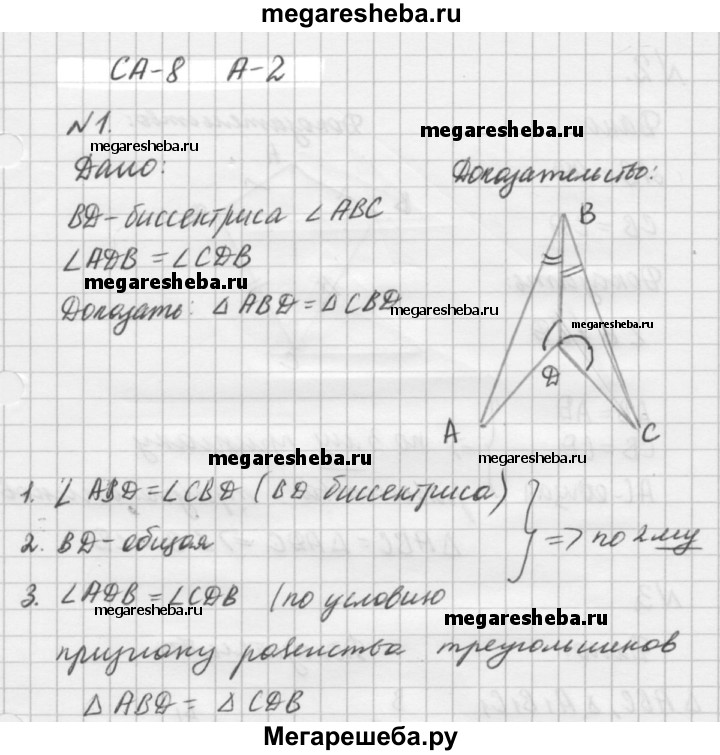 megaresheba.ru
СА-8 А-2
№1.
megaresheba.ru
megaresheba.ru
Дано:
Доказательство:
BD-биссектриса ∠ABC
B
∠ADB = ∠CDB
megaresheba.ru
Доказать: △ABD = △CBD
megaresheba.ru
megaresheba.ru
D
A
C
megaresheba.ru
megaresheba.ru
1. ∠ABD = ∠CBD (BD биссектриса)
2. BD-общая
} => по 2му
3. ∠ADB = ∠CDB (по условию
megaresheba.ru
megaresheba.ru
признаку равенства треугольников
△ABD = △CDB
Мегарешеба.ру